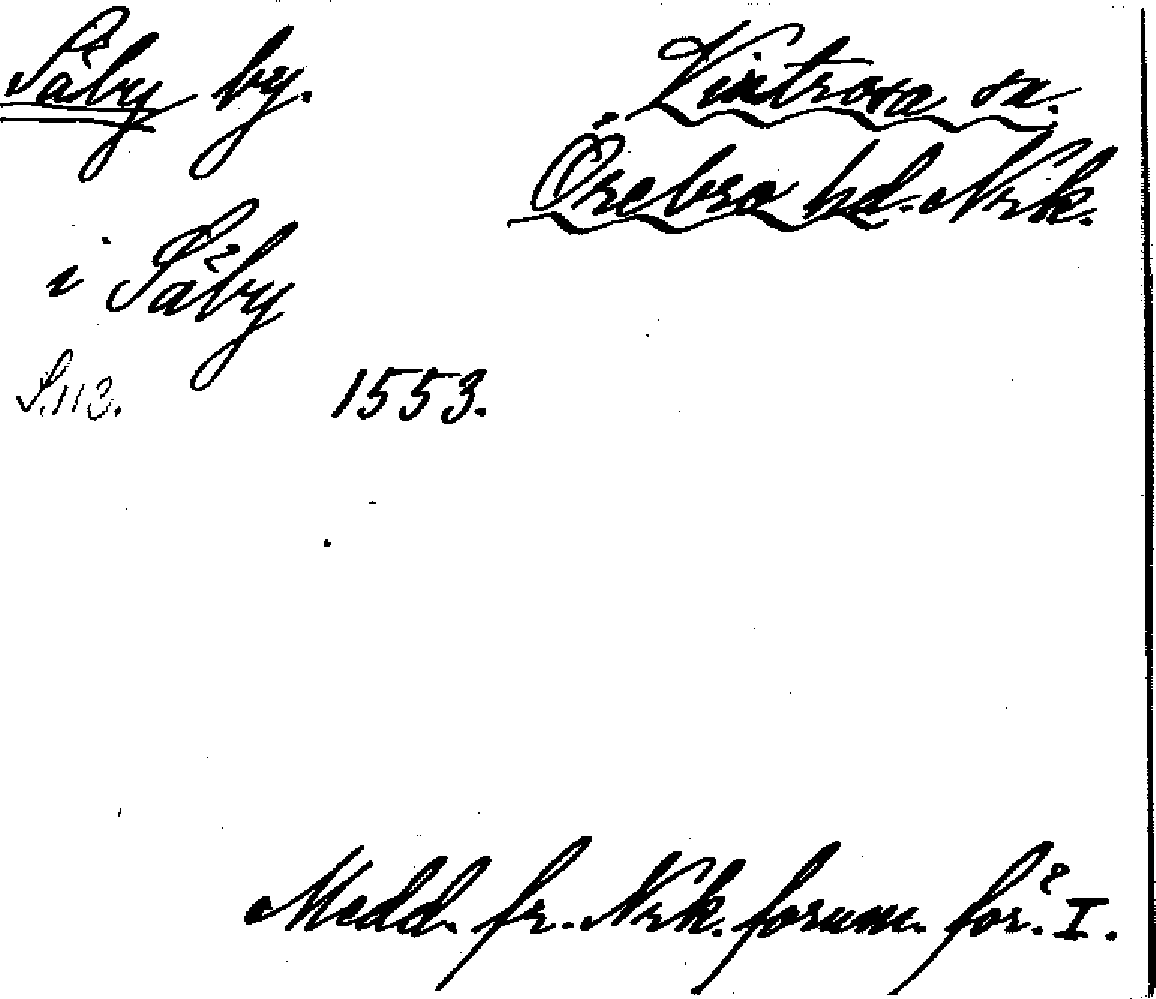 Såby by.
Vintrosa sn.
Örebro hd. Nrk.
i Såby
S. 113. 1553.
Medd. fr. Nrk. fornm. för. I.